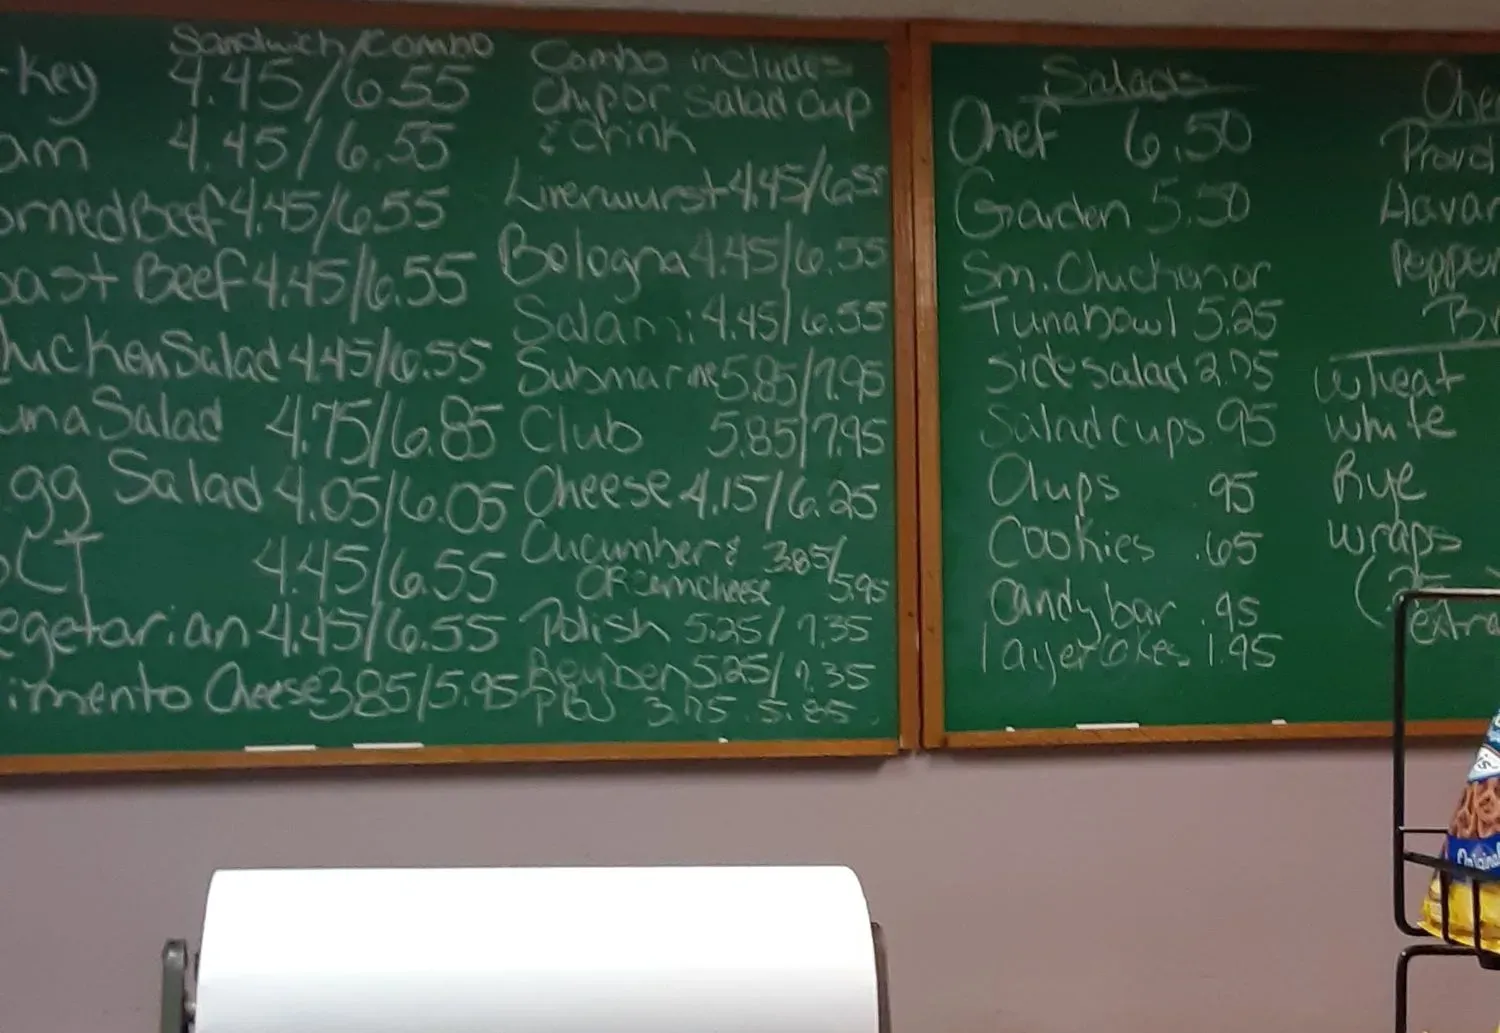 Sandwich/Combo
-key 4.45/6.55
am 4.45/6.55
orned Beef 4.45/6.55
oast Beef 4.45/6.55
hicken Salad 4.45/6.55
una Salad 4.75/6.85
gg Salad 4.05/6.05
LT 4.45/6.55
egetarian 4.45/6.55
imento Cheese 3.85/5.95
Combo includes
chip or salad cup
& drink
Liverwurst 4.45/6.55
Bologna 4.45/6.55
Salami 4.45/6.55
Submarine 5.85/7.95
Club 5.85/7.95
Cheese 4.15/6.25
Cucumber & 3.85/
Creamcheese 5.95
Polish 5.25/7.35
Reuben 5.25/7.35
PBJ 3.75 5.85
Salads
Chef 6.50
Garden 5.50
Sm. Chicken or
Tuna bowl 5.25
Side salad 2.75
Salad cups .95
Chips .95
Cookies .65
Candy bar .95
layer cakes 1.95
Che
Provol
Havar
Pepper
Br
Wheat
White
Rye
Wraps
extra
Original